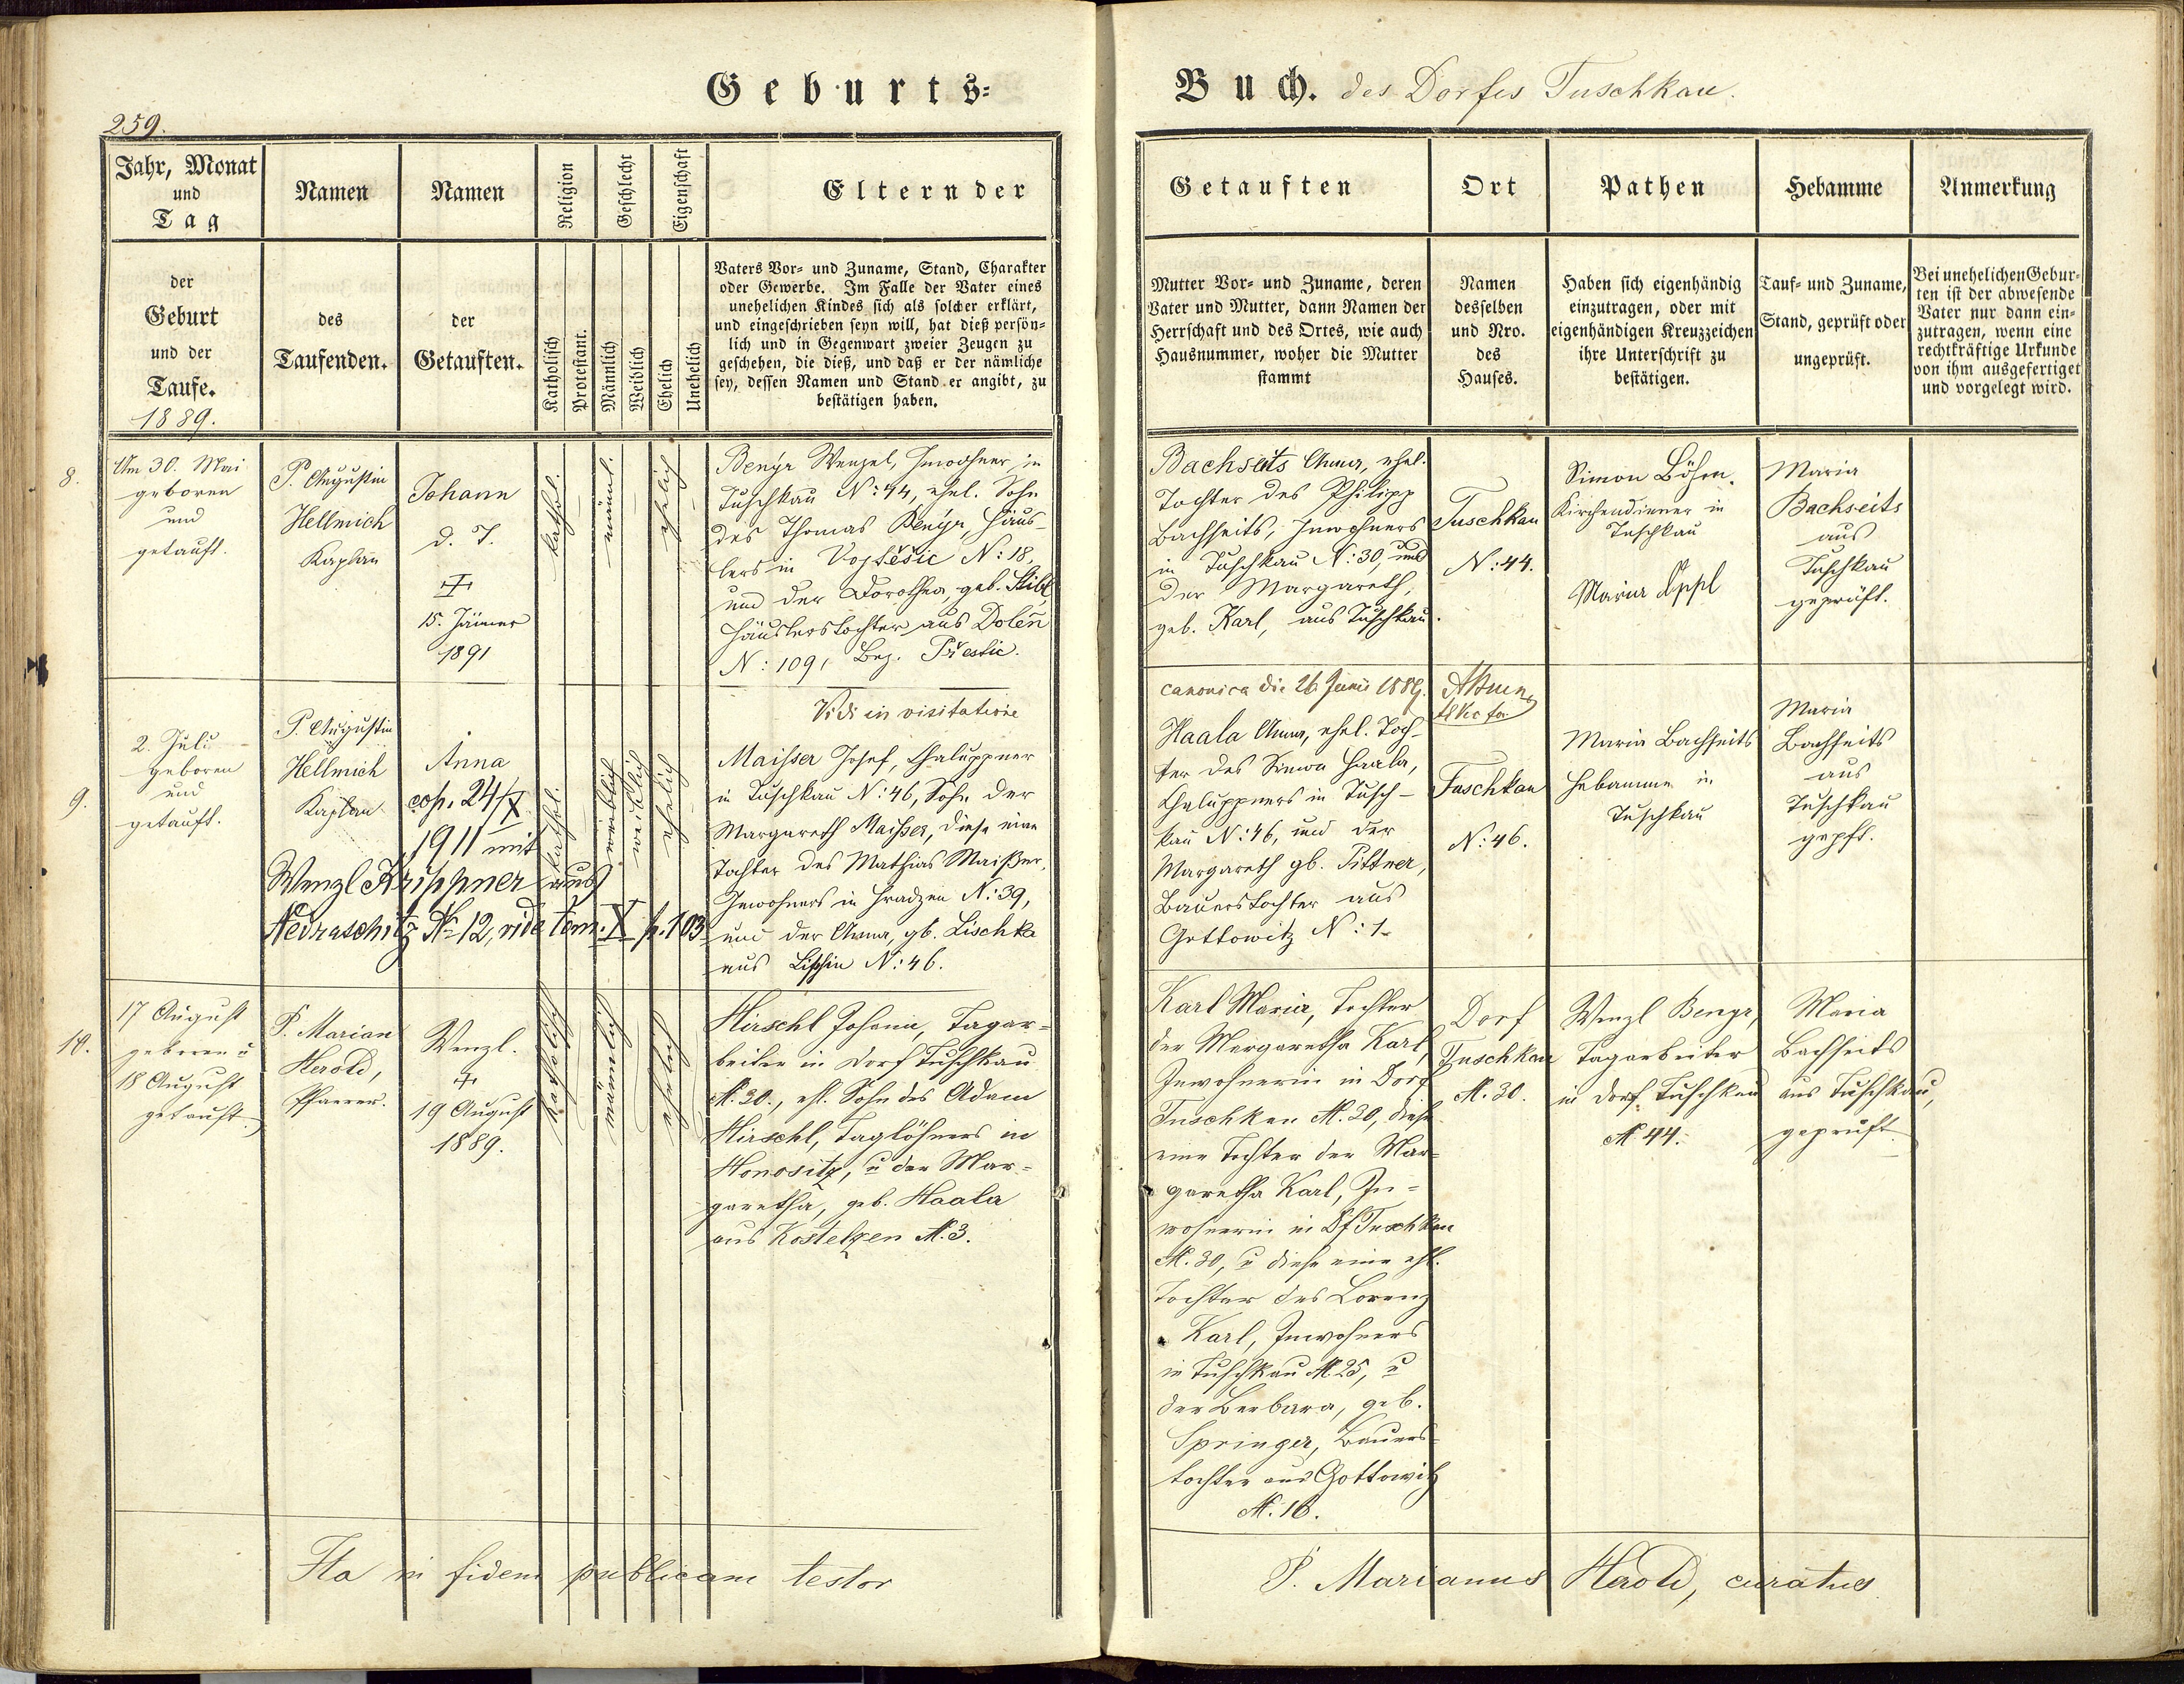 Geburts-
Buch. des Dorfes Tuschkau.
259.
Jahr, Monat
und
Tag
der
Geburt
und der
Taufe.
1889.
Namen
des
Taufenden.
Namen
der
Getauften.
Religion
Katholisch
Protestant.
Geschlecht
Männlich
Weiblich
Eigenschaft
Ehelich
Unehelich
Eltern der
Vaters Vor- und Zuname, Stand, Charakter
oder Gewerbe. Im Falle der Vater eines
unehelichen Kindes sich als solcher erklärt,
und eingeschrieben seyn will, hat dieß persön-
lich und in Gegenwart zweier Zeugen zu
geschehen, die dieß, und daß er der nämliche
sey, dessen Namen und Stand er angibt, zu
bestätigen haben.
Getauften
Mutter Vor- und Zuname, deren
Vater und Mutter, dann Namen der
Herrschaft und des Ortes, wie auch
Hausnummer, woher die Mutter
stammt
Ort
Namen
desselben
und Nro.
des
Hauses.
Pathen
Haben sich eigenhändig
einzutragen, oder mit
eigenhändigen Kreuzzeichen
ihre Unterschrift zu
bestätigen.
Hebamme
Tauf- und Zuname,
Stand, geprüft oder
ungeprüft.
Anmerkung
Bei unehelichen Gebur-
ten ist der abwesende
Vater nur dann ein-
zutragen, wenn eine
rechtkräftige Urkunde
von ihm ausgefertiget
und vorgelegt wird.
8.
Am 30. Mai
geboren
und
getauft.
P. Augustin
Hellmich
Kaplan
Johann
d. T.
15. Jänner
1891
kathol.
männl.
ehelich
Benýr Wenzel, Inwohner in
Tuschkau N: 44, ehel. Sohn
des Thomas Benýr, Häus-
lers in Vojtěšic N: 18,
und der Dorothea, geb.
Häuslerstochter aus Dolen
N: 109, Bez. Přestic.
Bachseits Anna, ehel.
Tochter des Philipp
Bachseits, Inwohners
in Tuschkau N: 30, und
der Margareth,
geb. Karl, aus Tuschkau.
Tuschkau
N: 44.
Simon Böhm,
Kirchendiener in
Tuschkau
Maria Appl
Maria
Bachseits
aus
Tuschkau
geprüft.
Vidi in visitatione
canonica die 26 Junii 1889.
9.
2. Juli
geboren
und
getauft.
P. Augustin
Hellmich
Kaplan
Anna
cop. 24/X
1911 mit
Wenzl Krippner aus
Nedraschitz No 12, vide tom. X p. 103
kathol.
weiblich
weiblich
ehelich
Maisser Josef, Chaluppner
in Tuschkau N: 46, Sohn der
Margareth Maisser, diese eine
Tochter des Mathias Maißer,
Inwohners in Hradzen N: 39,
und der Anna, gb. Lischka
aus Lischin N: 46.
Haala Anna, ehel. Toch-
ter des Simon Haala,
Chaluppners in Tusch-
kau N: 46, und der
Margareth gb. Pittner,
Bauerstochter aus
Gottowitz N: 1.
Tuschkau
N: 46.
Maria Bachseits
Hebamme in
Tuschkau
Maria
Bachseits
aus
Tuschkau
gepft.
10.
17 August
geboren u
18 August
getauft.
P. Marian
Herold,
Pfarrer.
Wenzl.
19 August
1889.
katholisch
männlich
ehelich
Hirschl Johann, Tagar-
beiter in Dorf Tuschkau
N. 30., ehl. Sohn des Adam
Hirschl, Taglöhners in
Honositz, u der Mar-
garetha, geb. Haala
aus Kostelzen N. 3.
Karl Maria, Tochter
der Margaretha Karl,
Inwohnerin in Dorf
Tuschkau N. 30, diese
eine Tochter der Mar-
garetha Karl, In-
wohnerin in Df Tuschkau
N. 30, u diese eine ehl.
Tochter des Lorenz
Karl, Inwohners
in Tuschkau N. 25, u
der Barbara, geb.
Springer, Bauers-
tochter aus Gottowitz
N. 16.
Dorf
Tuschkau
N. 30.
Wenzl Benyr,
Tagarbeiter
in Dorf Tuschkau
N. 44.
Maria
Bachseits
aus Tuschkau,
geprüft.
Ita in fidem publicam testor
P. Marianus Herold, curatus